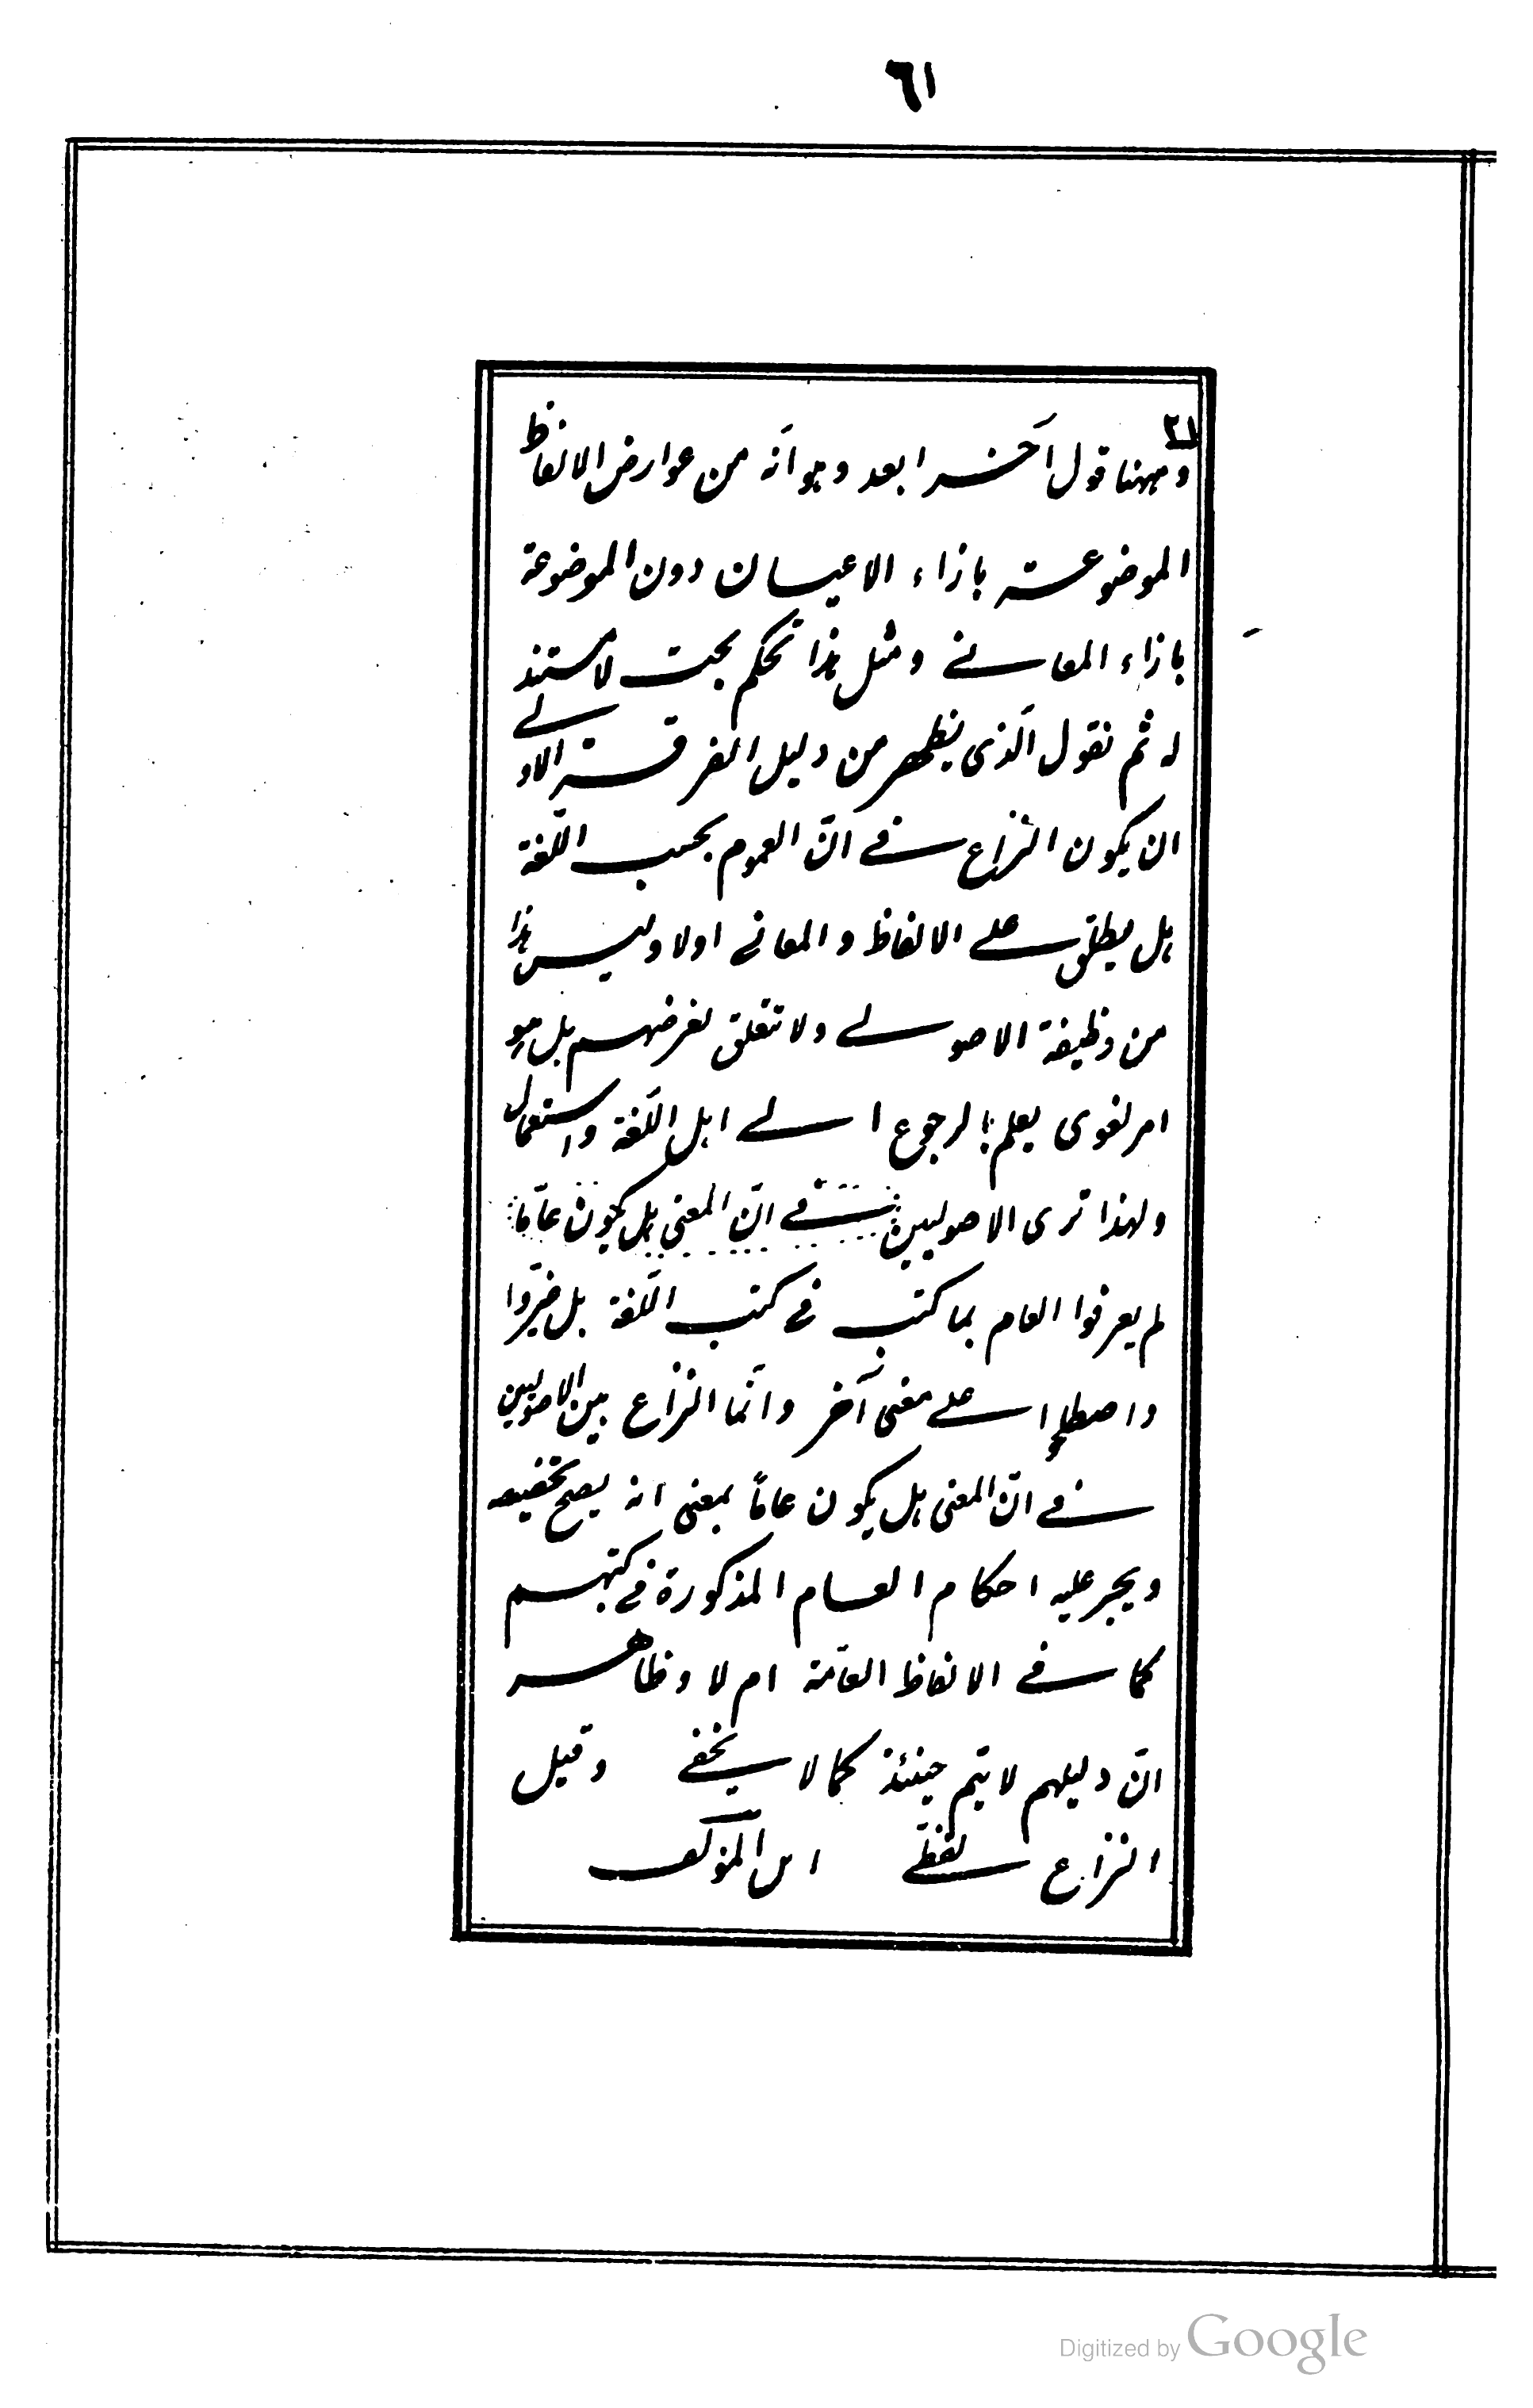 ٦١
٢١
وههنا قول آخر ابعد وهو انّه من عوارض الالفاظ
الموضوعة بازاء الاعيان دون الموضوعة
بازاء المعاني ومثل هذا تحكم بحت لا مستند
له ثم نقول الّذي يظهر من دليل الفرقة الاولى
ان يكون النزاع في انّ العموم بحسب اللّغة
هل يطلق على الالفاظ والمعاني اولا وليس هذا
من وظيفة الاصولي ولا تتعلق لغرضهم بل هو
امر لغوى يعلم بالرجوع الى اهل اللّغة واستعمال
ولهذا ترى الاصوليين في انّ المعنى هل يكون عامّا
لم يعرفوا العام بما كتب في كتب اللّغة بل
واصطلحوا على معنى آخر وانّما النزاع بين الاصوليين
في انّ المعنى هل يكون عامّا بمعنى انه يصح تخصيصه
ويجر عليه احكام العام المذكورة في كتبهم
كما في الالفاظ العامّة ام لا وظاهر
انّ دليلهم لا يتم حينئذ كما لا يخفى وقيل
النزاع لفظي ابن المؤلف
Digitized by Google